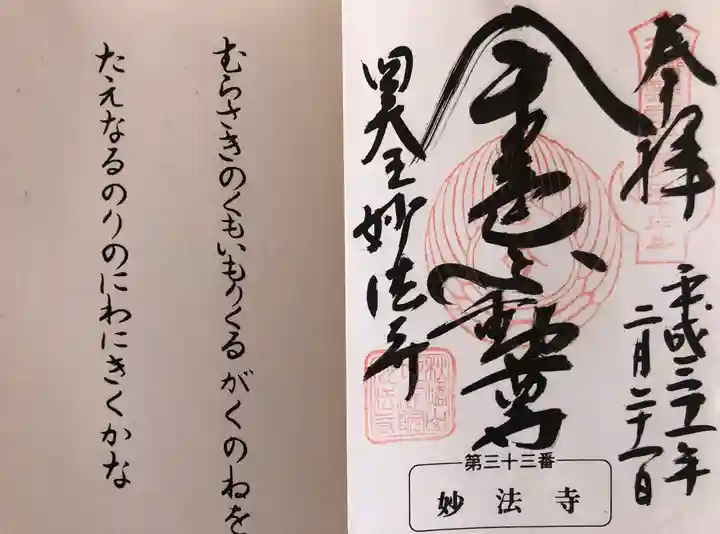 奉拝
平成三十一年
二月二十一日
不動尊
妙法寺
第三十三番
妙法寺
むらさきのくもいもりくるがくのねを
たえなるのりのにわにきくかな